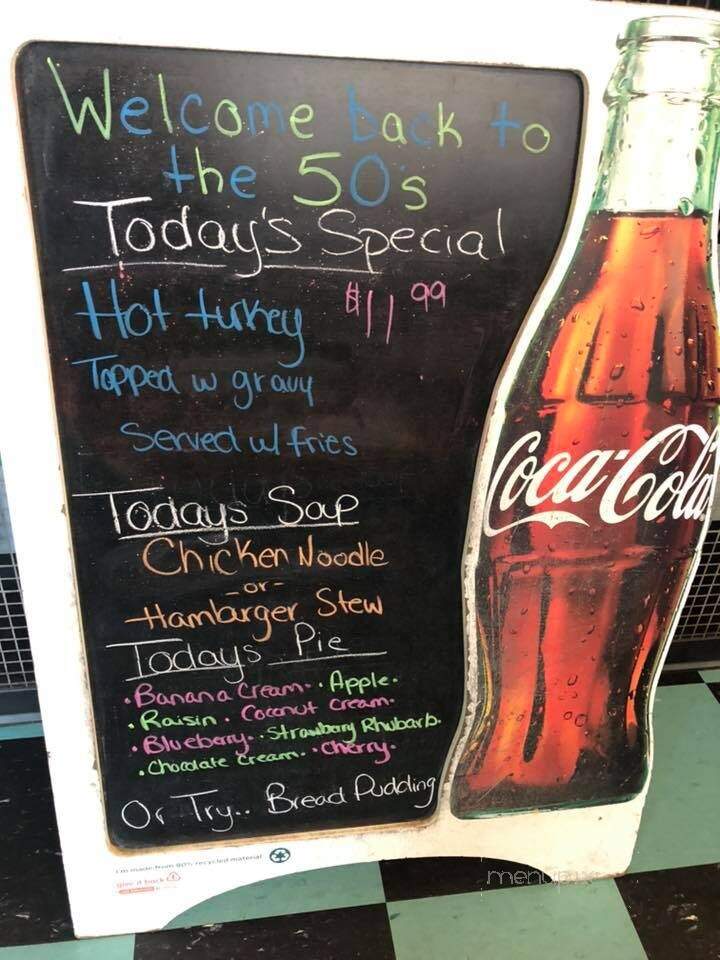 Welcome back to
the 50's
Today's Special
Hot turkey $11.99
Topped w gravy
Served w/ fries
Todays Soup
Chicken Noodle
-or-
Hamburger Stew
Todays Pie
• Banana Cream • Apple •
• Raisin • Coconut Cream •
• Blueberry • Strawbarry Rhubarb •
• Chocolate Cream • Cherry •
Or Try.. Bread Pudding
Coca-Cola
I'm made from 80% recycled material
give it back
menupix